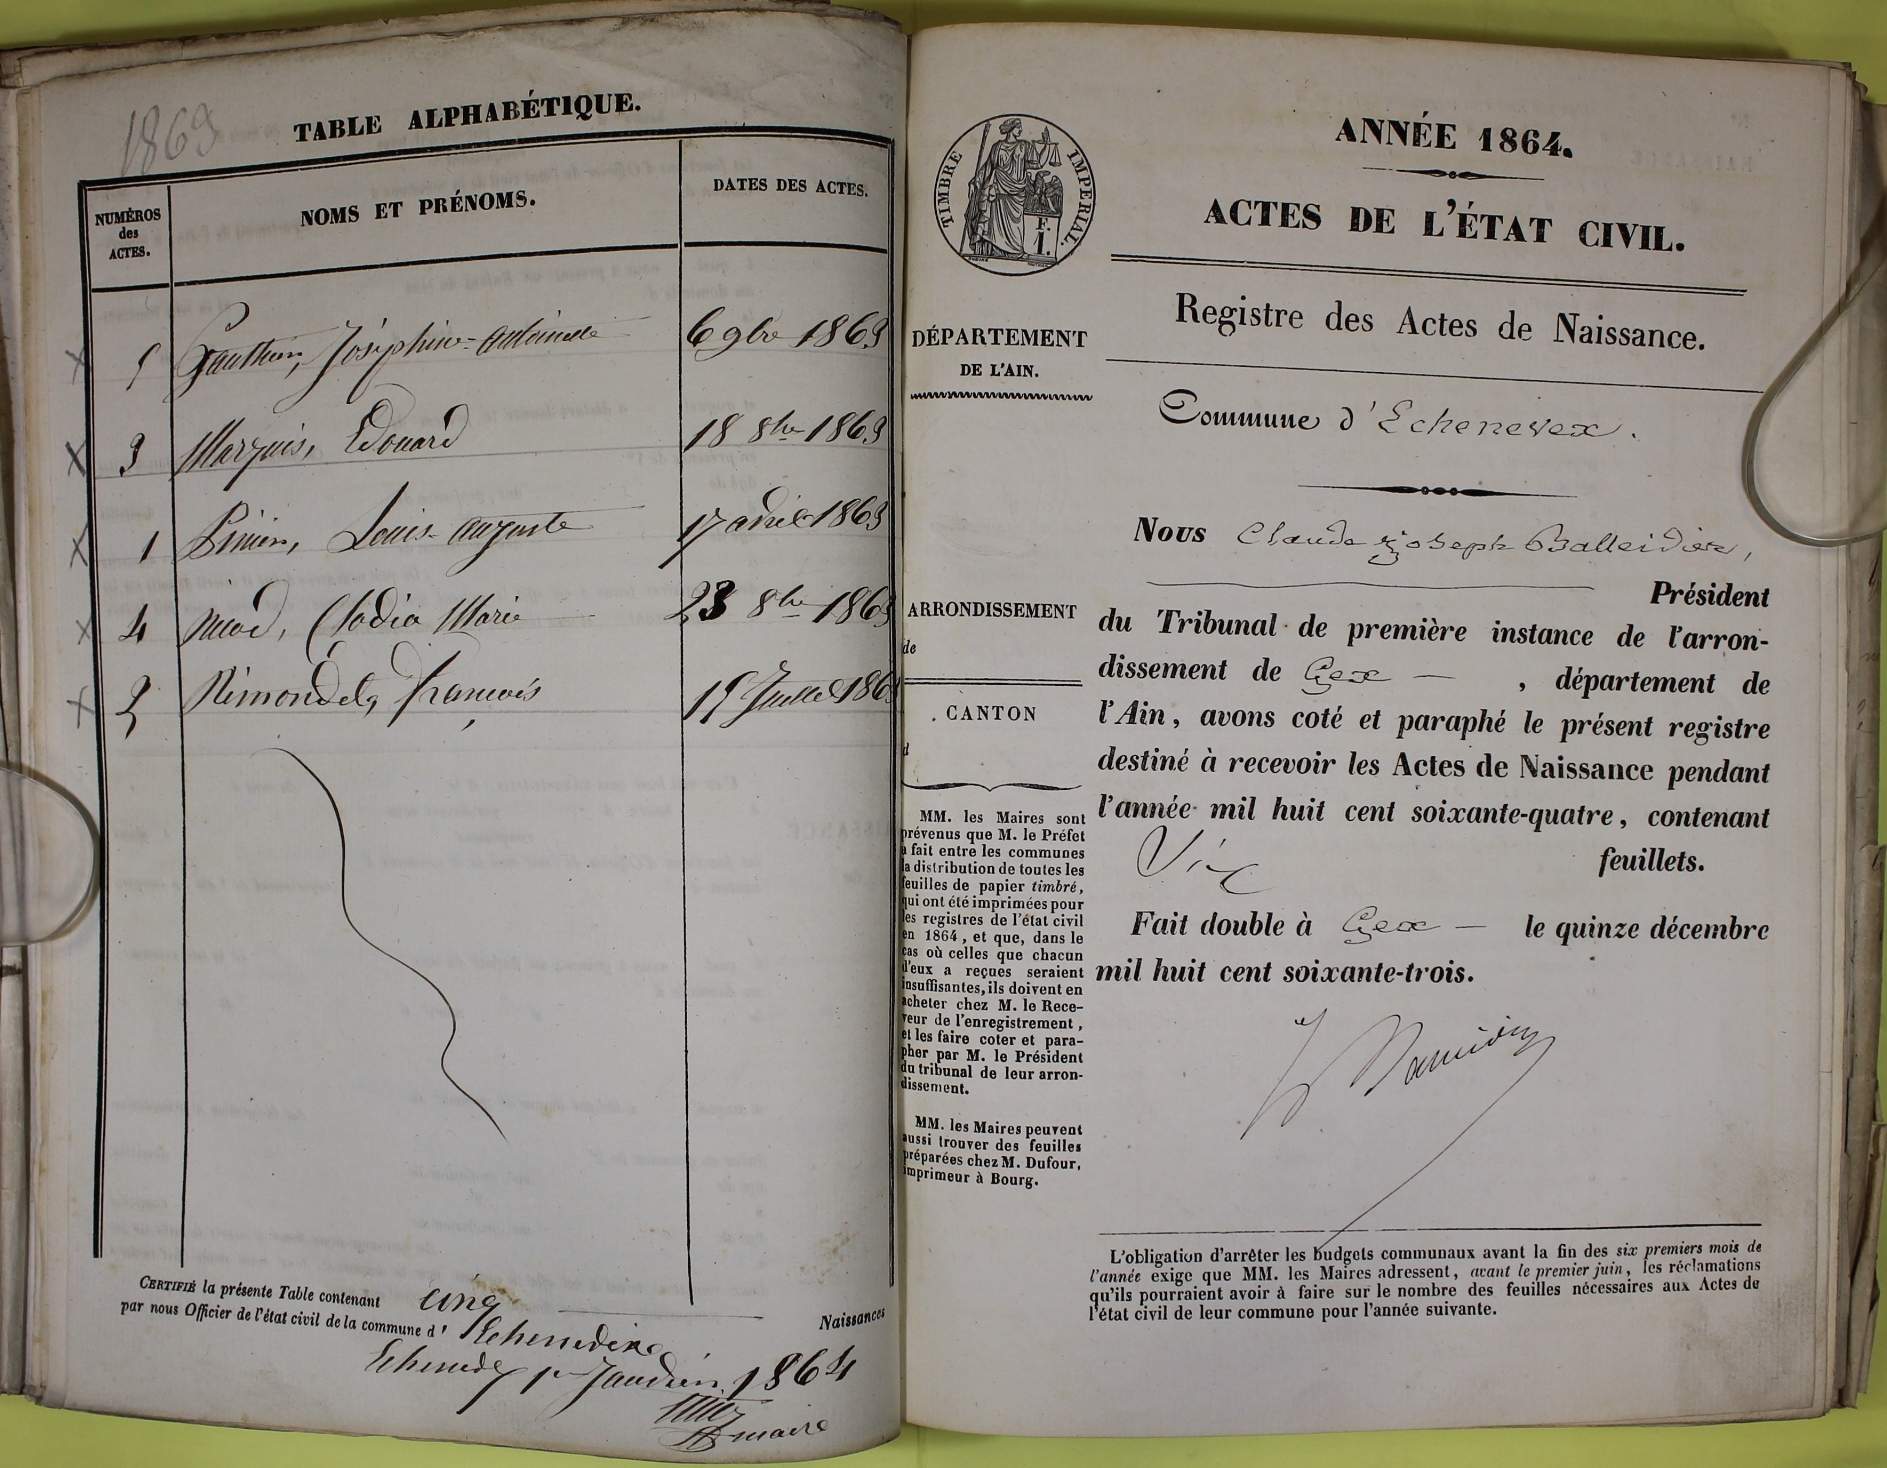 1863
TABLE ALPHABÉTIQUE.
NUMÉROS des ACTES.
NOMS ET PRÉNOMS.
DATES DES ACTES.
5 Gauthier, Joséphine-Antoinette 6 9bre 1863
3 Marquis, Edouard 18 8bre 1863
1 Louis-Auguste 17 avril 1863
4 nicod, Clodia Marie 23 8bre 1863
2 Rimondet, François 15 Juillet 1863
CERTIFIÉ la présente Table contenant cinq Naissances
par nous Officier de l'état civil de la commune d' Echenevex
Echenevex 1er Janvier 1864
maire
TIMBRE IMPERIAL.
F.
1.
DÉPARTEMENT
DE L'AIN.
ARRONDISSEMENT
de
CANTON
d
MM. les Maires sont
prévenus que M. le Préfet
a fait entre les communes
la distribution de toutes les
feuilles de papier timbré,
qui ont été imprimées pour
les registres de l'état civil
en 1864, et que, dans le
cas où celles que chacun
d'eux a reçues seraient
insuffisantes, ils doivent en
acheter chez M. le Rece-
veur de l'enregistrement,
et les faire coter et para-
pher par M. le Président
du tribunal de leur arron-
dissement.
MM. les Maires peuvent
aussi trouver des feuilles
préparées chez M. Dufour,
imprimeur à Bourg.
ANNÉE 1864.
ACTES DE L'ÉTAT CIVIL.
Registre des Actes de Naissance.
Commune d'Echenevex.
Nous Claude Joseph Balleidier,
Président
du Tribunal de première instance de l'arron-
dissement de Gex — , département de
l'Ain, avons coté et paraphé le présent registre
destiné à recevoir les Actes de Naissance pendant
l'année mil huit cent soixante-quatre, contenant
Six feuillets.
Fait double à Gex — le quinze décembre
mil huit cent soixante-trois.
L'obligation d'arrêter les budgets communaux avant la fin des six premiers mois de
l'année exige que MM. les Maires adressent, avant le premier juin, les réclamations
qu'ils pourraient avoir à faire sur le nombre des feuilles nécessaires aux Actes de
l'état civil de leur commune pour l'année suivante.